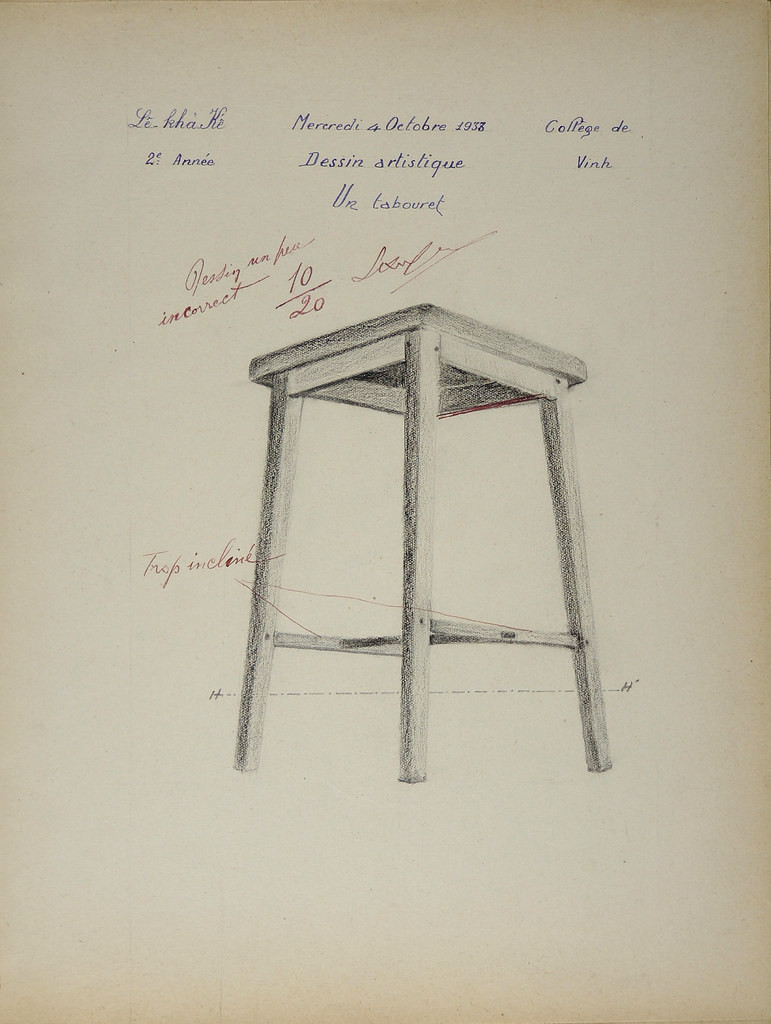 Lê-khả-Kế
Mercredi 4 Octobre 1938
Collège de
2e Année
Dessin artistique
Vinh
Un tabouret
Dessin un peu
incorrect
10
20
Trop incliné
H
H'